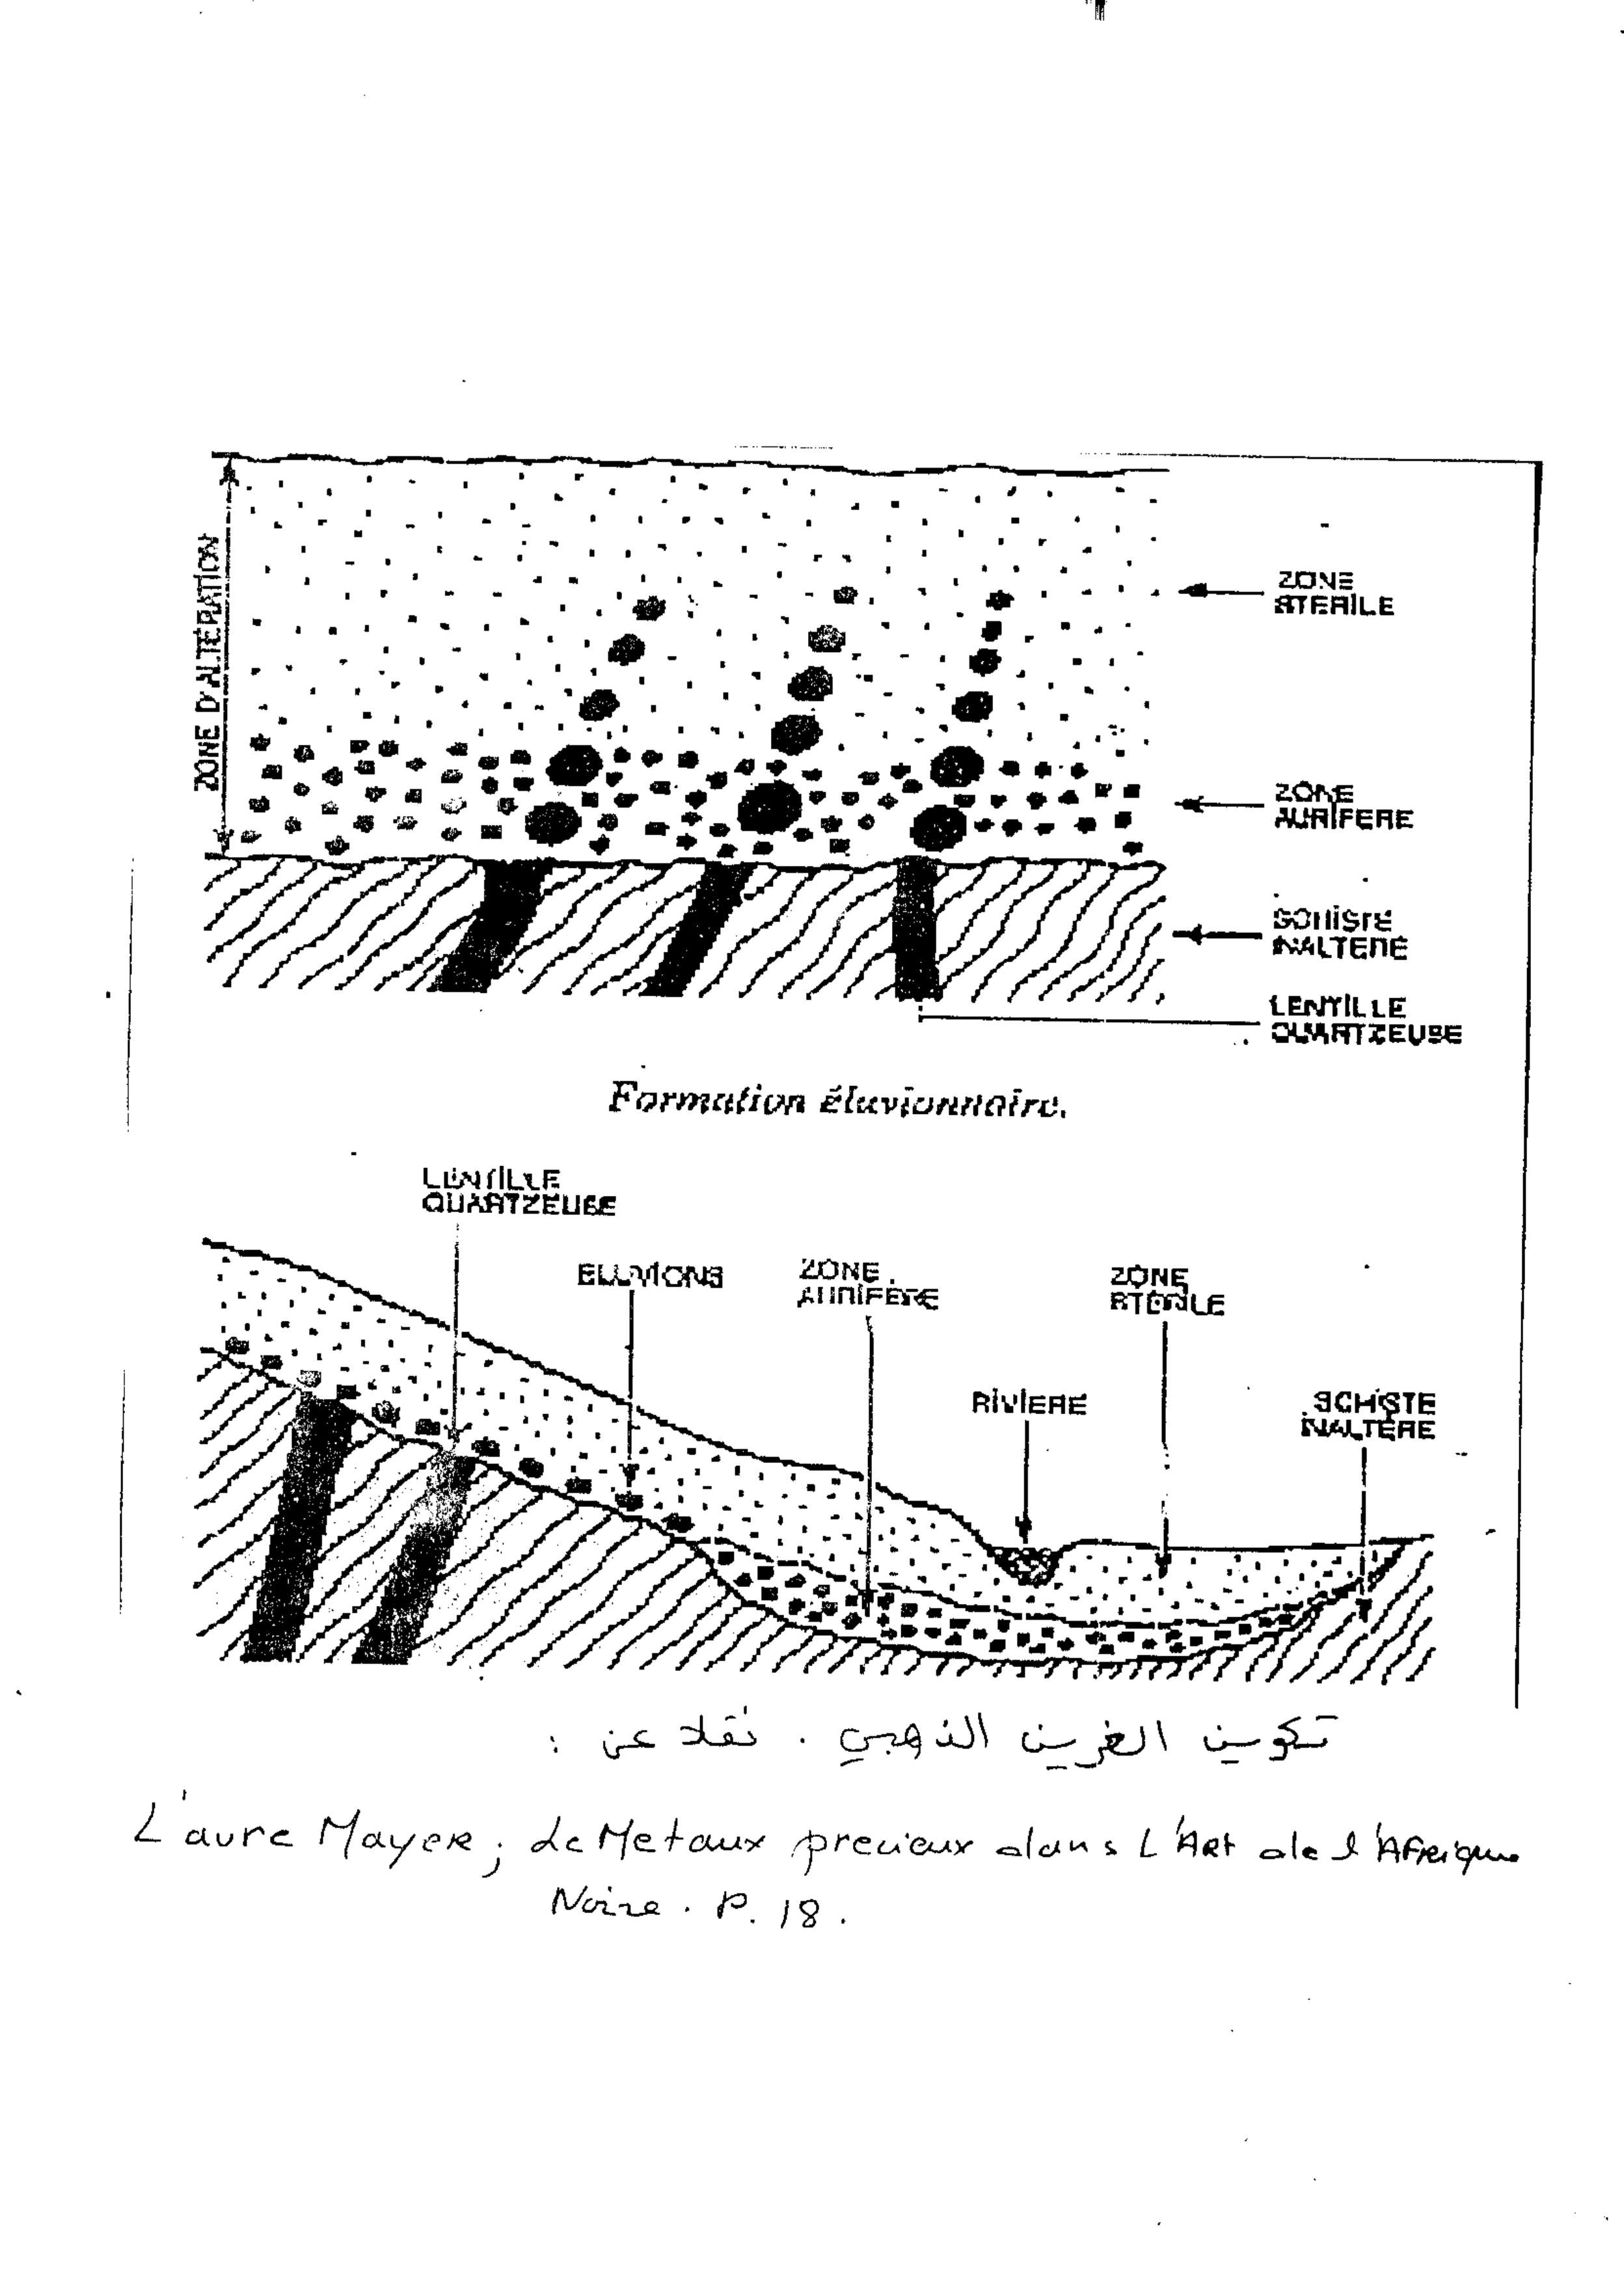 ZONE D'ALTÉRATION
ZONE
STERILE
ZONE
AURIFERE
SCHISTE
INALTERÉ
LENTILLE
QUARTZEUSE
Formation éluvionnaire.
LENTILLE
QUARTZEUSE
ELUVIONS
ZONE
AURIFÈRE
ZONE
STÉRILE
RIVIERE
SCHISTE
INALTERE
تكوين الغرين الذهبي . نقلا عن :
L'aure Mayer ; Le Metaux precieux dans L'Art de l'Afrique
Noire . P. 18 .